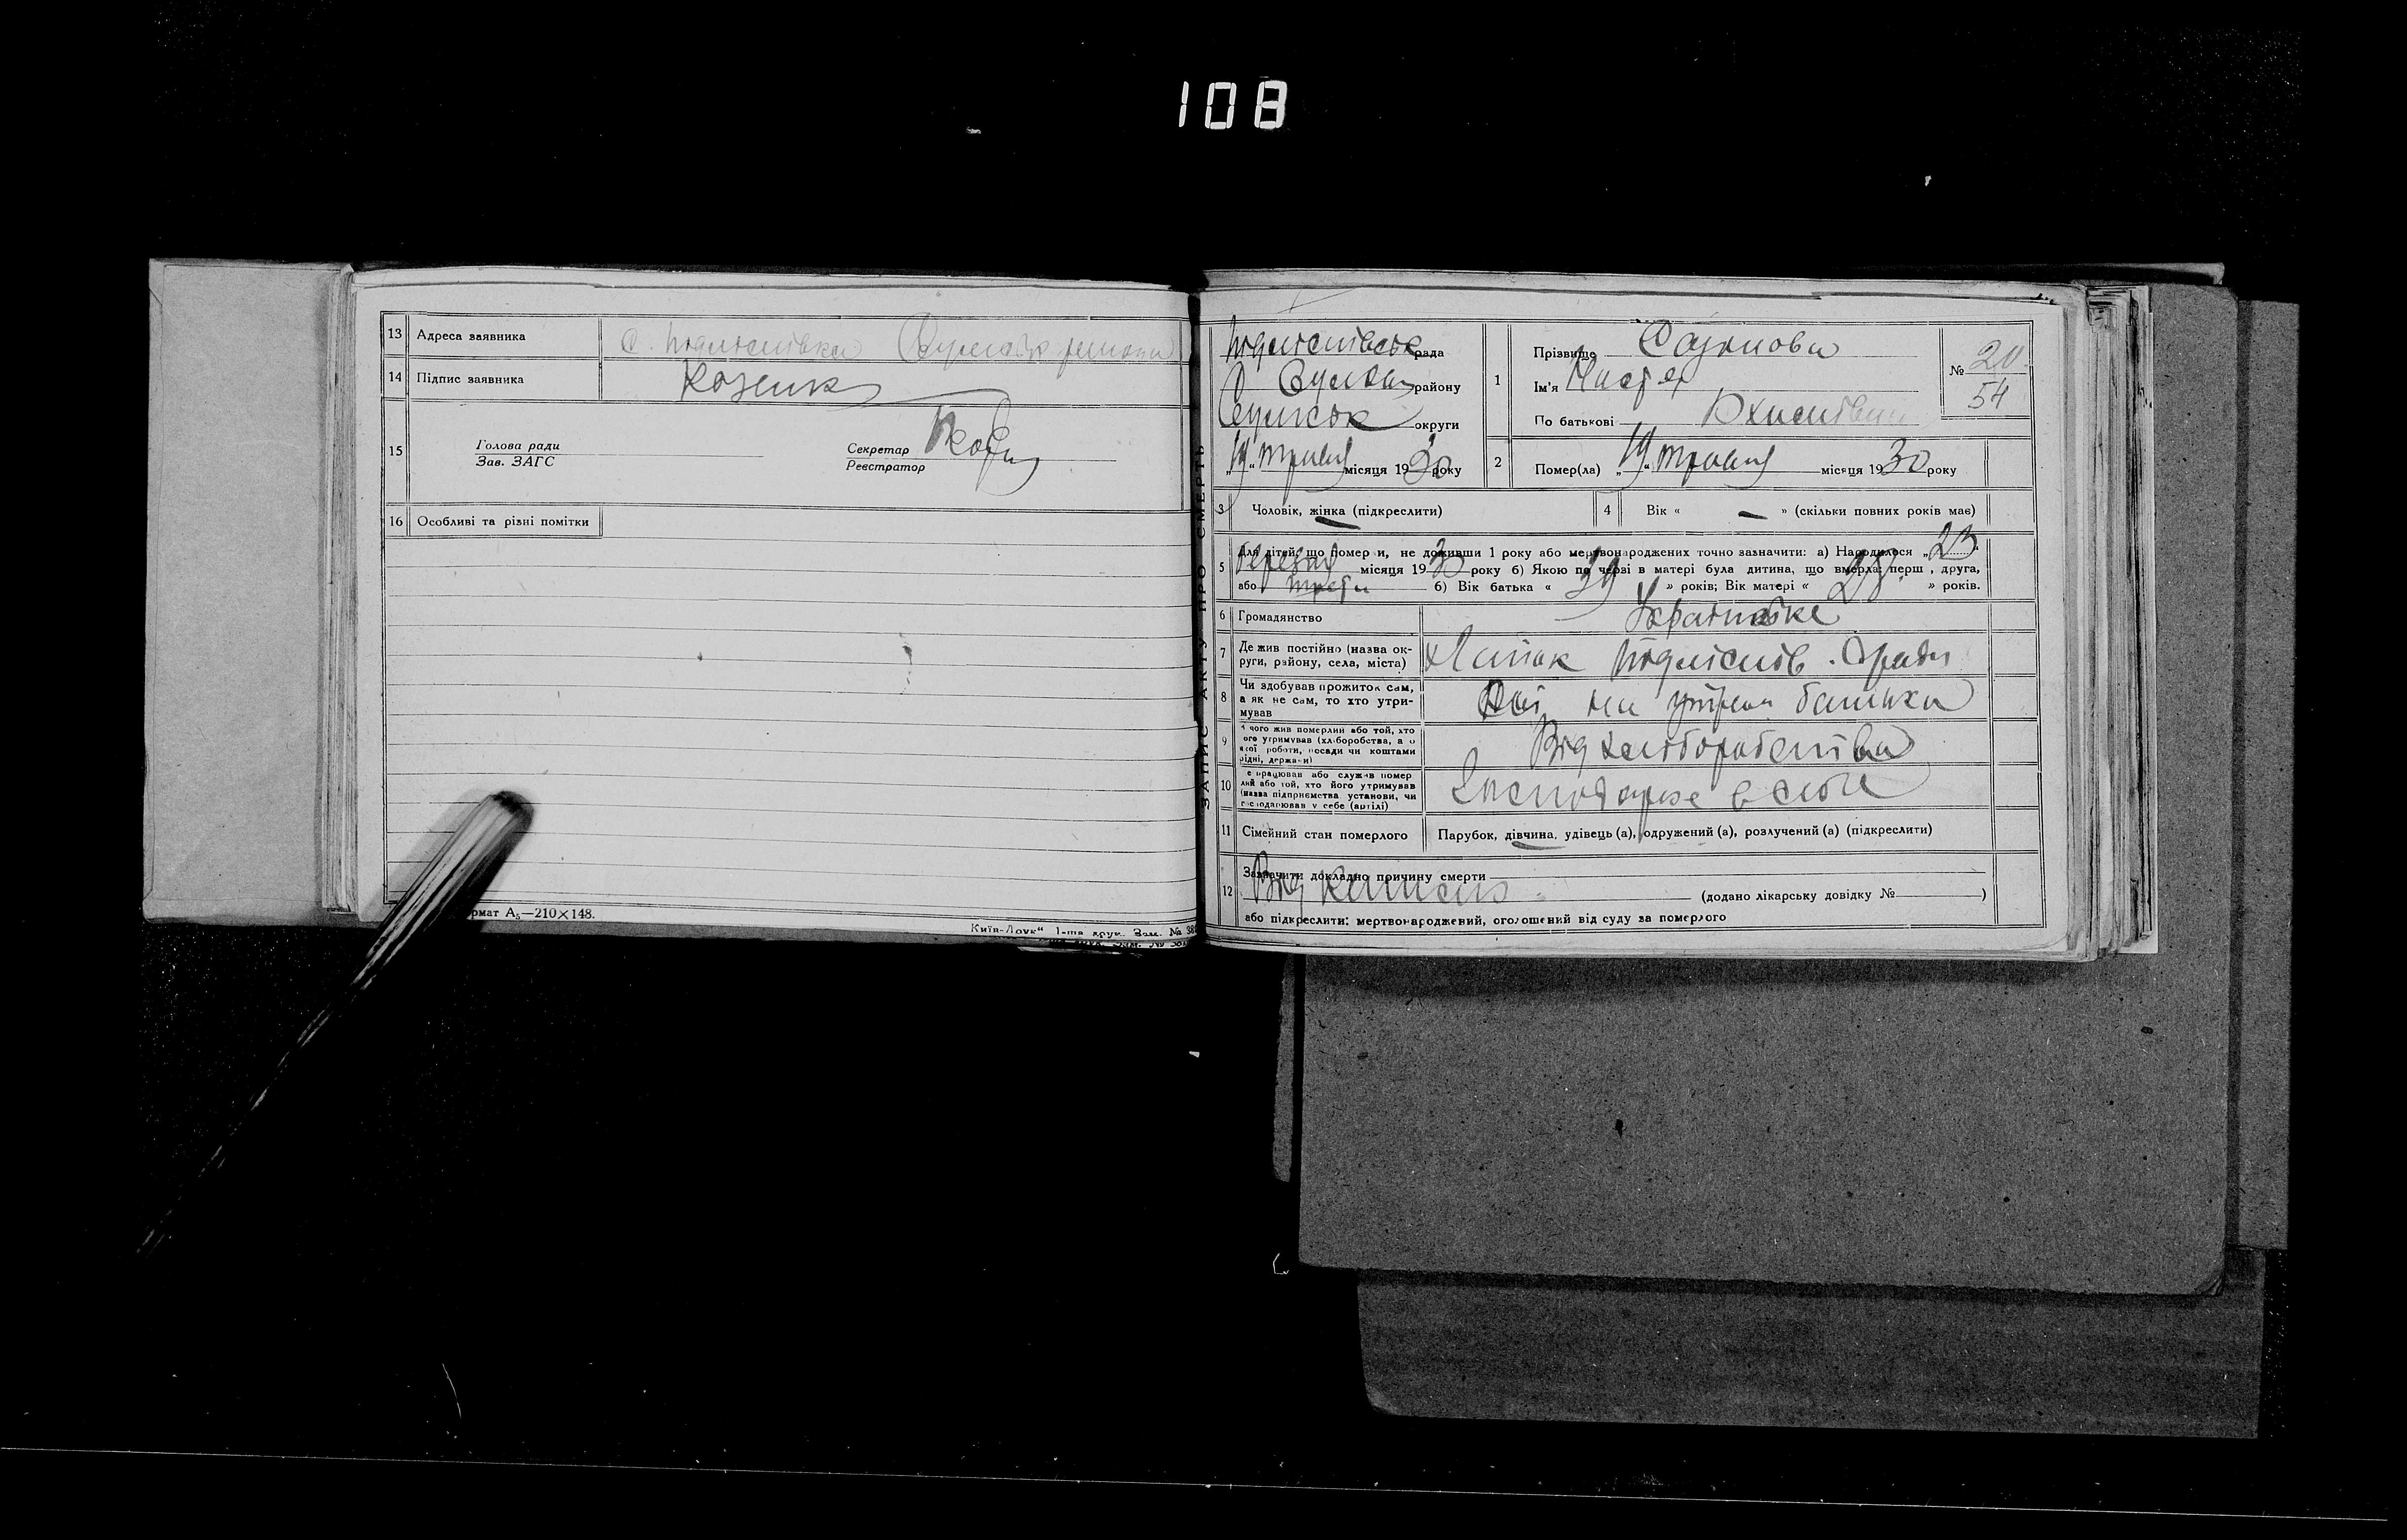 108
13 Адреса заявника
с. Підліснівка Сумськ района
14 Підпис заявника Козенко
15 Голова ради
Зав. ЗАГС
Секретар
Реєстратор
16 Особливі та різні помітки
рмат А5—210×148.
Київ-Друк" 1-ша друк. Зам. № 38
ЗАПИС АКТУ ПРО СМЕРТЬ
Підліснівськ рада
Сумськ району
Сумськ округи
„19“ травня місяця 1930 року
1 Прізвище
Ім'я Настя
По батькові
№ 20
54
2 Помер(ла) „19“ травня місяця 1930 року
3 Чоловік, жінка (підкреслити)
4 Вік « — » (скільки повних років має)
5 Для дітей, що померли, не доживши 1 року або мертвонароджених точно зазначити: а) Народилося „23“
березня місяця 1930 року б) Якою по черзі в матері була дитина, що вмерла: перш , друга,
або третя б) Вік батька « 29 » років; Вік матері « 28 » років.
6 Громадянство Українське
7 Де жив постійно (назва округи, району, села, міста) Підліснів. С ради
8 Чи здобував прожиток сам, а як не сам, то хто утримував Ні на утрим батька
9 чого жив померлий або той, хто ого утримував (хліборобства, а о кої роботи, посади чи коштами рідні, держави) Від хліборобства
10 е працював або служив помер лий або той, хто його утримував (назва підприємства установи, чи господарював у себе (артілі) в селі
11 Сімейний стан померлого Парубок, дівчина, удівець (а), одружений (а), розлучений (а) (підкреслити)
12 Зазначити докладно причину смерти
Від (додано лікарську довідку № )
або підкреслити: мертвонароджений, оголошений від суду за померлого